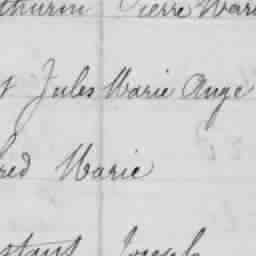 thurin Pierre Mari
t Jules Marie Ange
red Marie
stant Joseph